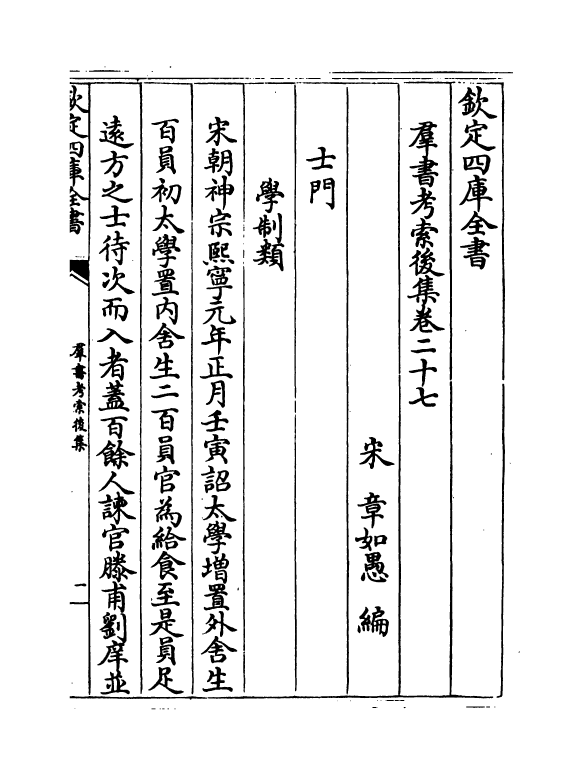 欽定四庫全書
羣書考索後集卷二十七
宋 章如愚 編
士門
學制類
宋朝神宗熙寧元年正月壬寅詔太學增置外舍生
百員初太學置内舍生二百員官為給食至是員足
遠方之士待次而入者蓋百餘人諫官滕甫劉庠並
欽定四庫全書
羣書考索後集